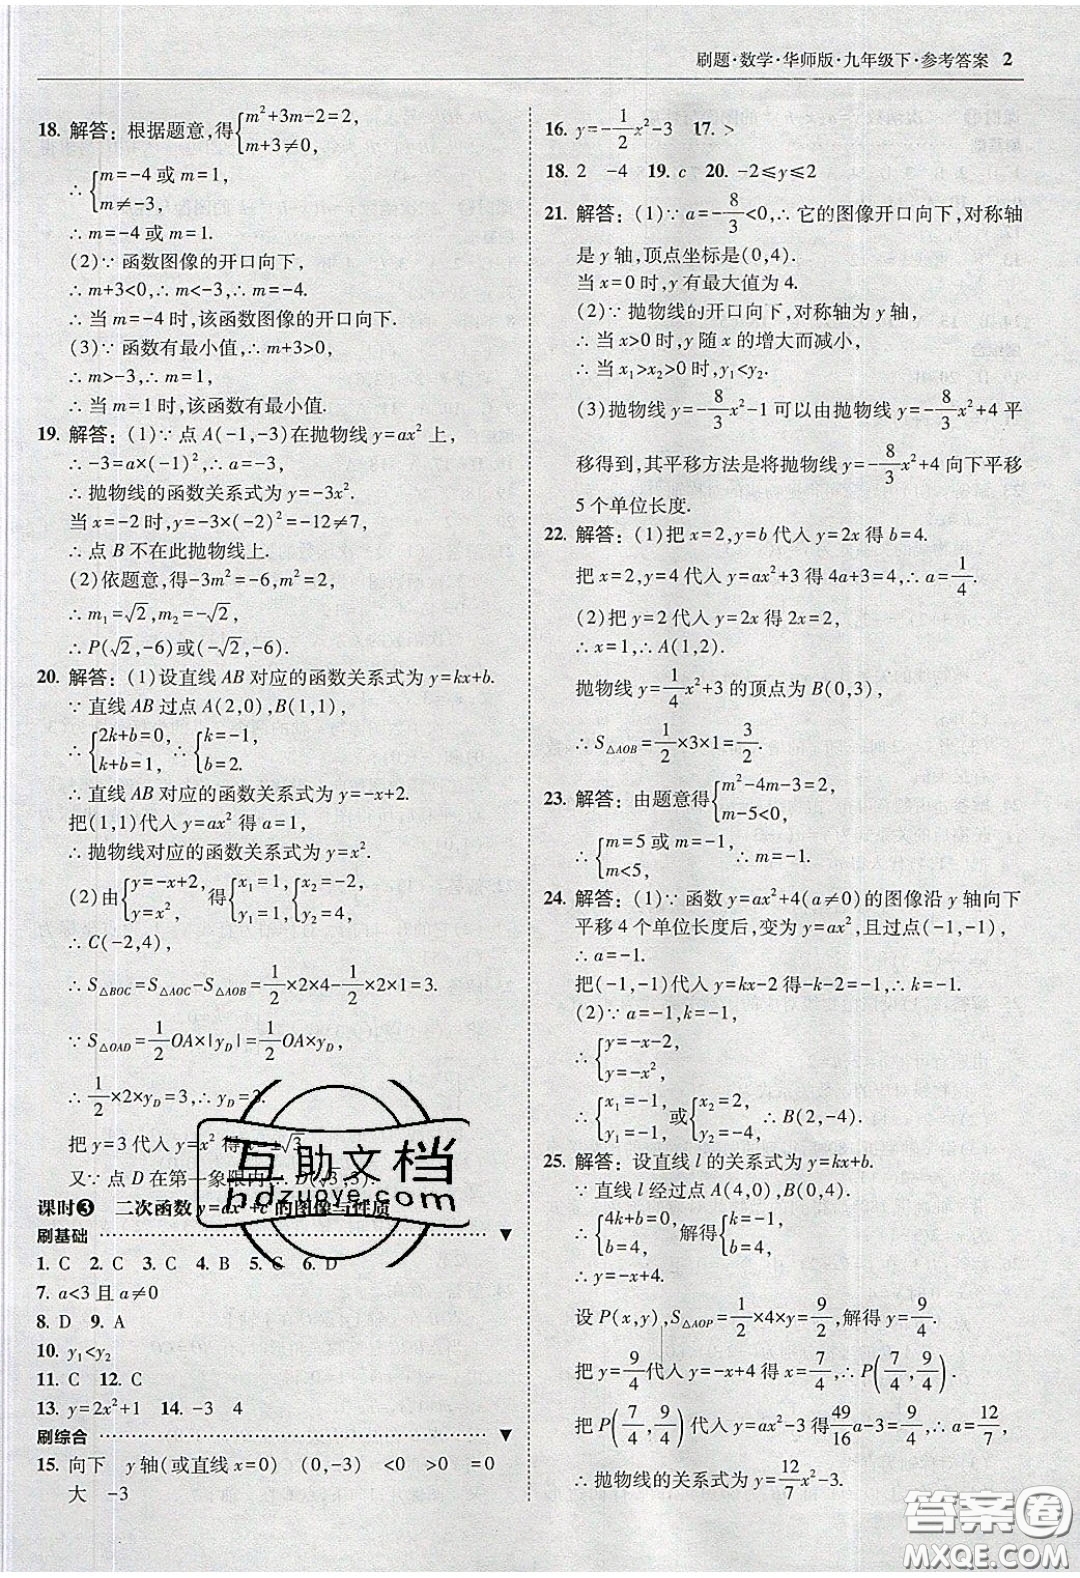 刷题·数学·华师版·九年级下·参考答案 2
18. 解答：根据题意，得{m²+3m-2=2, m+3≠0,
∴{m=-4或m=1, m≠-3,
∴m=-4或m=1.
(2)∵函数图像的开口向下，
∴m+3<0,∴m<-3,∴m=-4.
∴当m=-4时，该函数图像的开口向下.
(3)∵函数有最小值，∴m+3>0,
∴m>-3,∴m=1.
∴当m=1时，该函数有最小值.
19. 解答：(1)∵点A(-1,-3)在抛物线y=ax²上，
∴-3=a×(-1)²,∴a=-3,
∴抛物线的函数关系式为y=-3x².
当x=-2时，y=-3×(-2)²=-12≠7,
∴点B不在此抛物线上.
(2)依题意，得-3m²=-6,m²=2,
∴m₁=√2,m₂=-√2,
∴P(√2,-6)或(-√2,-6).
20. 解答：(1)设直线AB对应的函数关系式为y=kx+b.
∵直线AB过点A(2,0),B(1,1),
∴{2k+b=0, k+b=1, ∴{k=-1, b=2.
∴直线AB对应的函数关系式为y=-x+2.
把(1,1)代入y=ax²得a=1,
∴抛物线对应的函数关系式为y=x².
(2)由{y=-x+2, y=x², 得{x₁=1, y₁=1, {x₂=-2, y₂=4,
∴C(-2,4),
∴S△BOC=S△AOC-S△AOB=1/2×2×4-1/2×2×1=3.
∵S△OAD=1/2 OA×|y_D|=1/2 OA×y_D,
∴1/2×2×y_D=3,∴y_D=3.
把y=3代入y=x²得x=±√3.
又∵点D在第一象限内,∴D(√3,3).
课时❸ 二次函数y=ax²+c的图像与性质
刷基础 ▼
1. C 2. C 3. C 4. B 5. C 6. D
7. a<3且a≠0
8. D 9. A
10. y₁<y₂
11. C 12. C
13. y=2x²+1 14. -3 4
刷综合 ▼
15. 向下 y轴(或直线x=0) (0,-3) <0 >0 =0
大 -3
16. y=-1/2x²-3 17. >
18. 2 -4 19. c 20. -2≤y≤2
21. 解答：(1)∵a=-8/3<0,∴它的图像开口向下,对称轴
是y轴,顶点坐标是(0,4).
当x=0时,y有最大值为4.
(2)∵抛物线的开口向下,对称轴为y轴，
∴当x>0时,y随x的增大而减小,
∴当x₁>x₂>0时,y₁<y₂.
(3)抛物线y=-8/3x²-1可以由抛物线y=-8/3x²+4平
移得到,其平移方法是将抛物线y=-8/3x²+4向下平移
5个单位长度.
22. 解答：(1)把x=2,y=b代入y=2x得b=4.
把x=2,y=4代入y=ax²+3得4a+3=4,∴a=1/4.
(2)把y=2代入y=2x得2x=2,
∴x=1,∴A(1,2).
抛物线y=1/4x²+3的顶点为B(0,3),
∴S△AOB=1/2×3×1=3/2.
23. 解答：由题意得{m²-4m-3=2, m-5<0,
∴{m=5或m=-1, m<5, ∴m=-1.
24. 解答：(1)∵函数y=ax²+4(a≠0)的图像沿y轴向下
平移4个单位长度后,变为y=ax²,且过点(-1,-1),
∴a=-1.
把(-1,-1)代入y=kx-2得-k-2=-1,∴k=-1.
(2)∵a=-1,k=-1,
∴{y=-x-2, y=-x².
∴{x₁=-1, y₁=-1 或{x₂=2, y₂=-4, ∴B(2,-4).
25. 解答：设直线l的关系式为y=kx+b.
∵直线l经过点A(4,0),B(0,4),
∴{4k+b=0, b=4, 解得{k=-1, b=4,
∴y=-x+4.
设P(x,y),S△AOP=1/2×4×y=9/2,解得y=9/4.
把y=9/4代入y=-x+4得x=7/4,∴P(7/4,9/4).
把P(7/4,9/4)代入y=ax²-3得49/16a-3=9/4,a=12/7,
∴抛物线的关系式为y=12/7x²-3.
互助文档
hdzuoye.com
答案圈
MXQE.COM